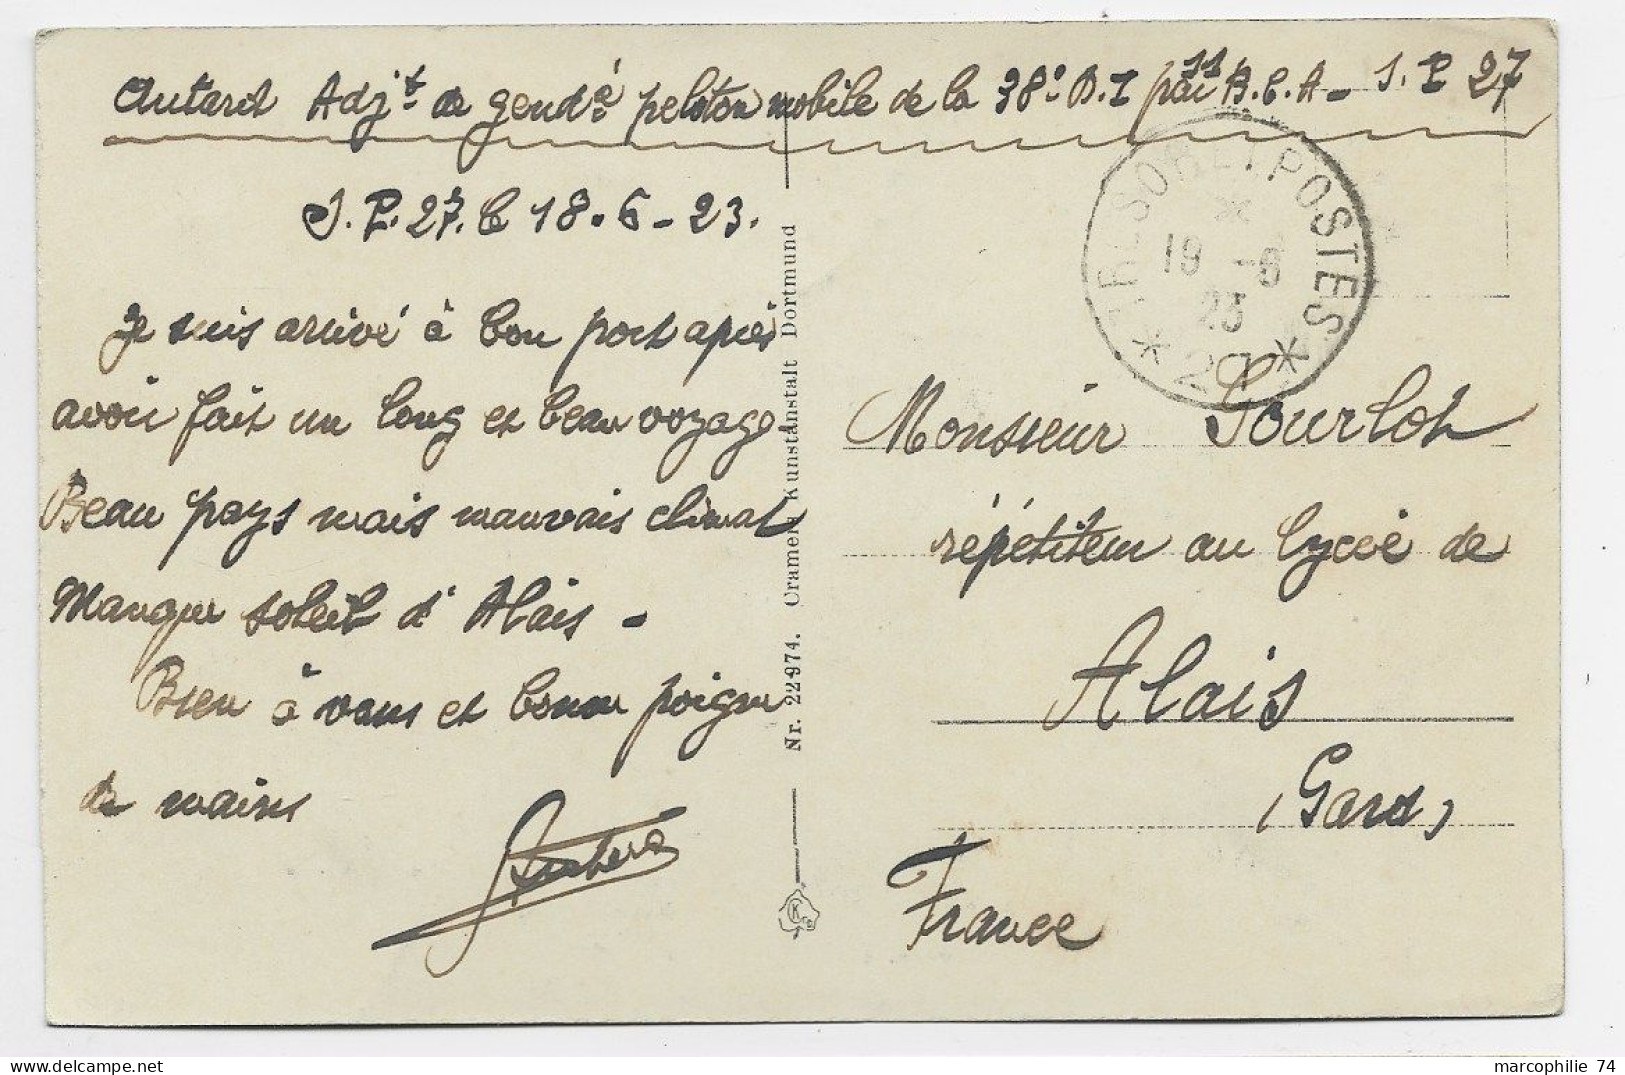 Autard Adjt de gendie peloton mobile de la 38e D.I par 11 B.C.A - S.P 27
S.P. 27. le 18-6-23.
Je suis arrivé à bon port après
avoir fait un long et beau voyage.
Beau pays mais mauvais climat
Manque soleil d'Alais -
Bien à vous et bonne poignée
de mains
Autard
Nr. 22974. Cramers Kunstanstalt Dortmund
TRESOR ET POSTES
19 -6
23
* 27 *
Monsieur Gourlot
répétiteur au lycée de
Alais
(Gard)
France
marcophilie 74